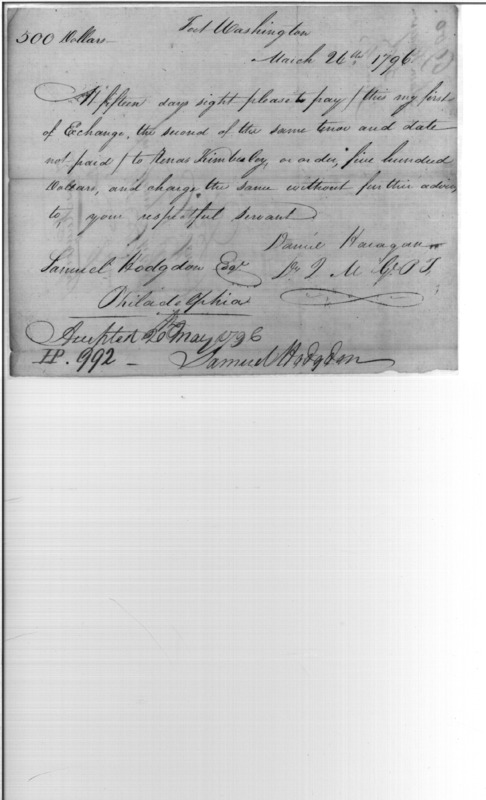 500 Dollars
Fort Washington
March 26th 1796
At fifteen days sight please to pay / this my first
of Exchange, the second of the same tenor and date
not paid / to Kimberley, or order, five hundred
Dollars, and charge the same without further advice,
to, your respectful servant
Daniel
Samuel Hodgdon Esqr
Philadelphia
Accepted May 1796
992 –
Samuel Hodgdon